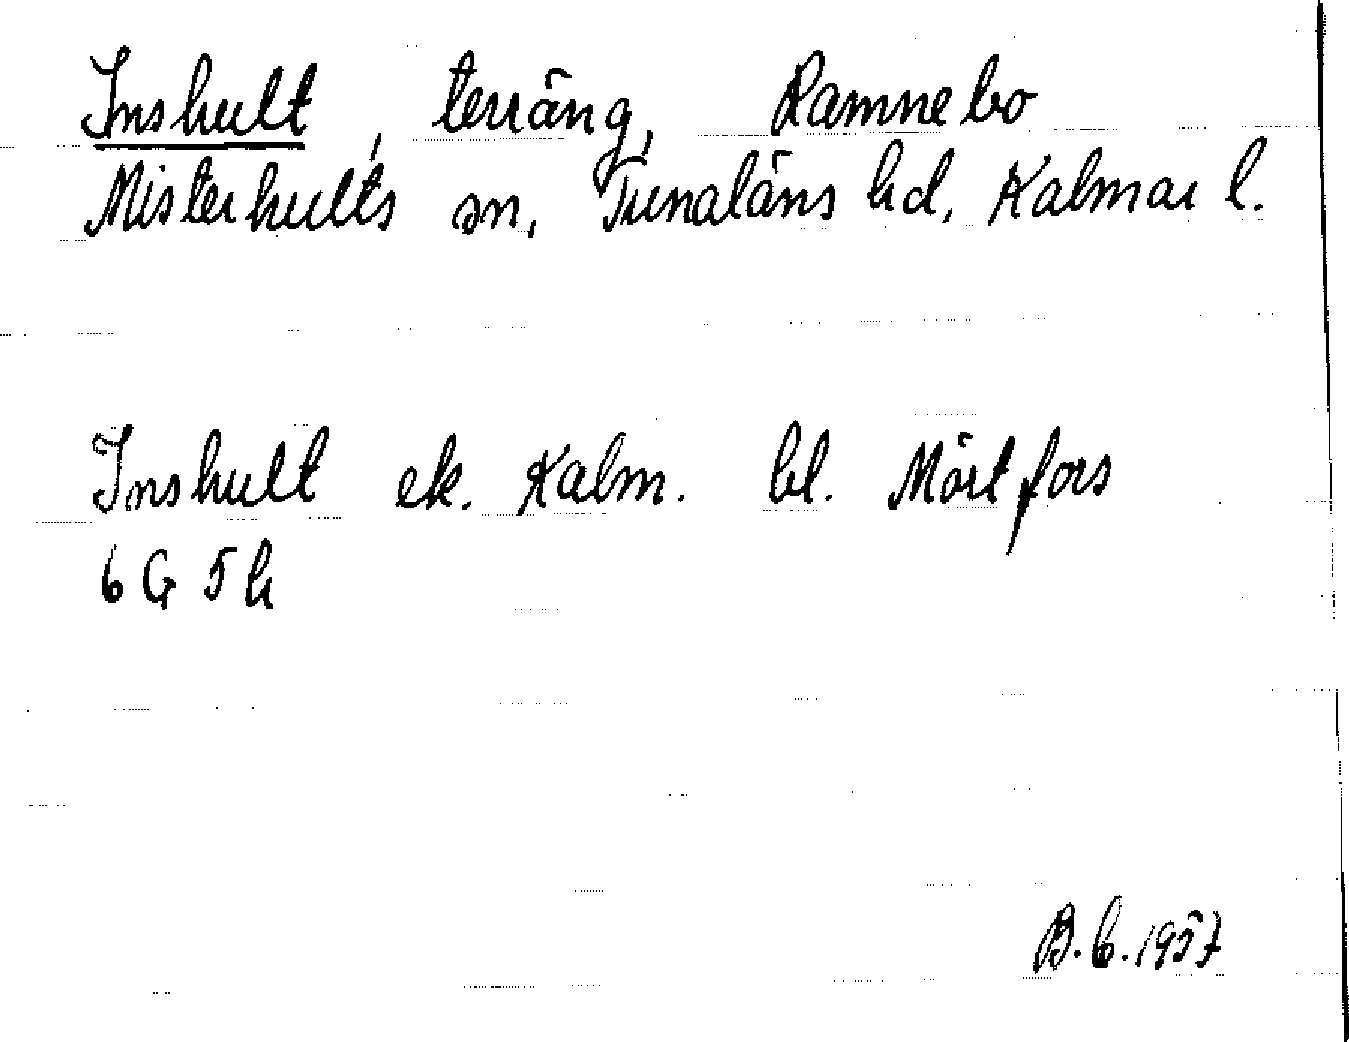 Inshult, terräng, Ramnebo
Misterhults sn, Tunaläns hd, Kalmar l.
Inshult ek. Kalm. bl. Mörtfors
6 G 5 h
B.b.1957